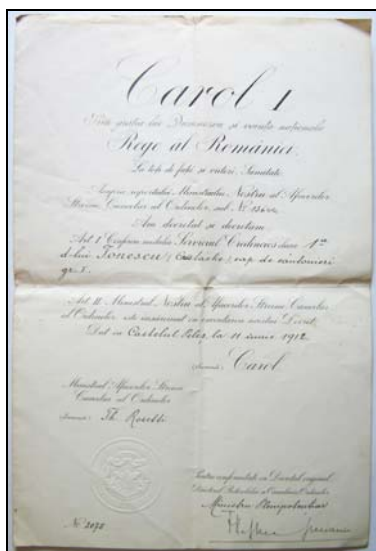 Carol I
Prin grația lui Dumnezeu și voința națională
Rege al României.
La toți de față și viitori, Sănătate.
Asupra raportului Ministrului Nostru al Afacerilor
Streine, Cancelar al Ordinelor, sub No
Am decretat și decretăm:
Art. I Conferim medalia Serviciul Credincios clasa 1a
d-lui Ionescu cap de cantonieri
gr. I.
Art. II Ministrul Nostru al Afacerilor Streine, Cancelar
al Ordinelor este însărcinat cu executarea acestui Decret.
Dat în Castelul Peleș la 11 iunie 1912.
Carol
Ministrul Afacerilor Streine
Cancelar al Ordinelor
Th. Rosetti
Pentru conformitate cu Decretul original
Ministru Plenipotențiar
No. 2078